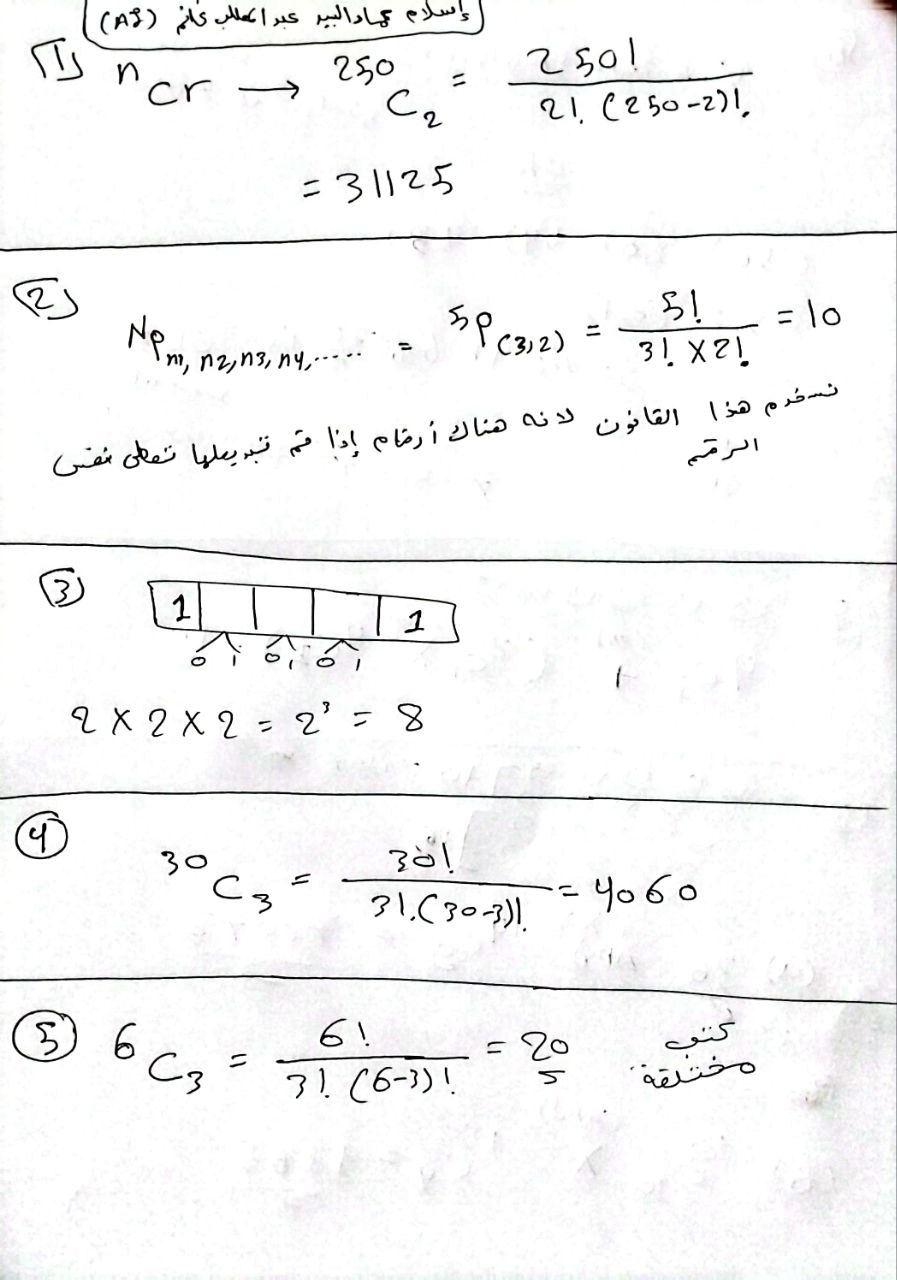 إسلام عماد السيد عبد المطلب غانم (AI)
1) nCr → 250C2 = 250! / 2! (250-2)!
= 31125
2) NPn1, n2, n3, n4, ..... = 5P(3,2) = 5! / 3! X 2! = 10
نستخدم هذا القانون لانه هناك أرقام إذا تم تبديلها تعطى نفس
الرقم
3) 1 1
0 1 0 1 0 1
2 X 2 X 2 = 2³ = 8
4) 30C3 = 30! / 3! (30-3)! = 4060
5) 6C3 = 6! / 3! (6-3)! = 20 كتب
مختلفة